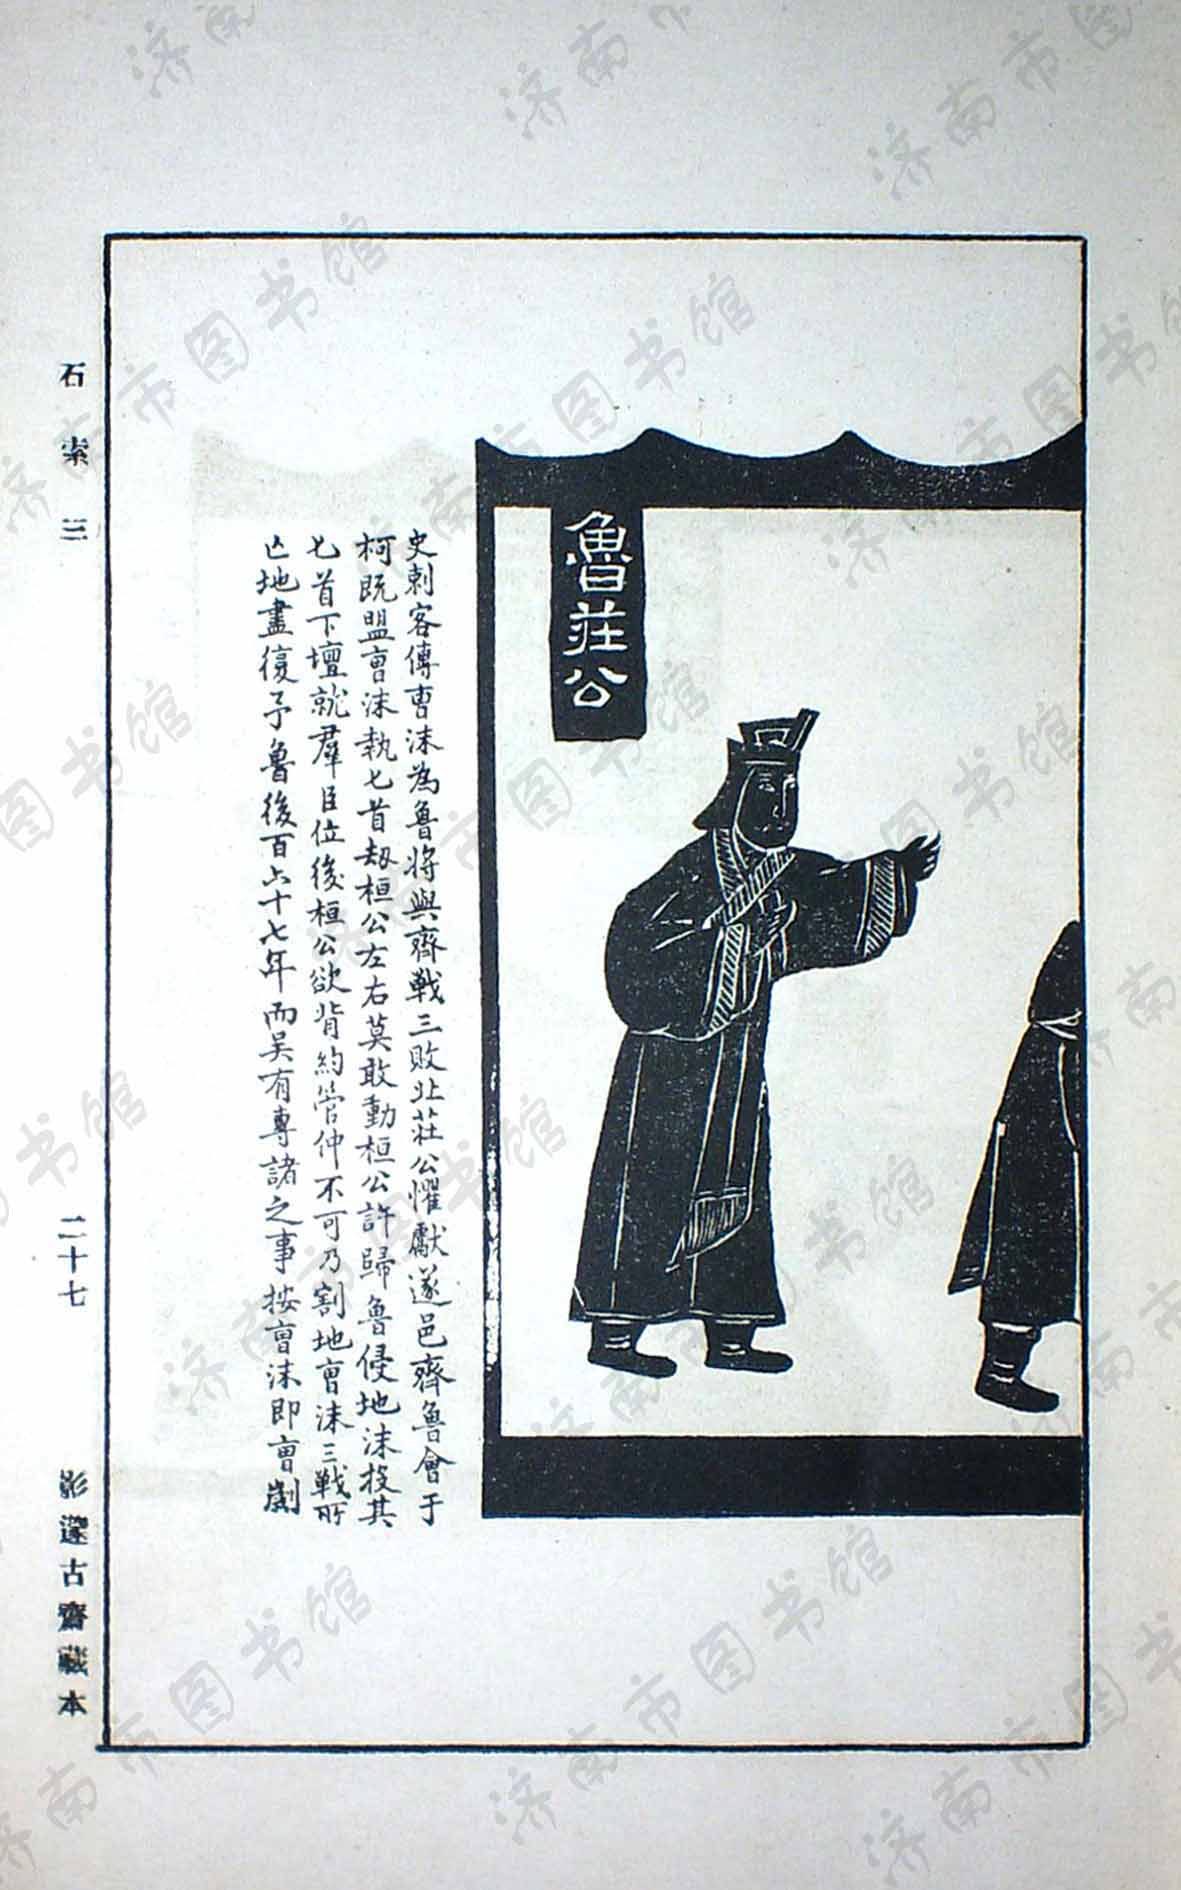 魯莊公
史刺客傳曺沬為魯將與齊戰三敗北莊公懼獻遂邑齊魯會于
柯既盟曺沬執匕首刼桓公左右莫敢動桓公許歸魯侵地沬投其
匕首下壇就羣臣位後桓公欲背約管仲不可乃割地曺沬三戰所
亾地盡復予魯後百六十七年而吴有專諸之事按曺沬即曺劌
石索三
二十七
影邃古齋藏本
济南市图书馆